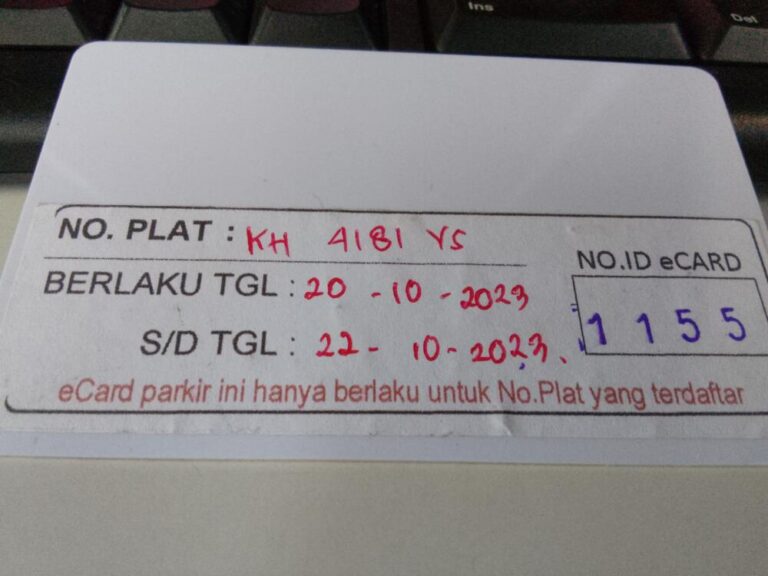 Ins
Del
NO. PLAT : KH 4181 YS
NO.ID eCARD
BERLAKU TGL : 20 - 10 - 2023
1155
S/D TGL : 22 - 10 - 2023.
eCard parkir ini hanya berlaku untuk No.Plat yang terdaftar